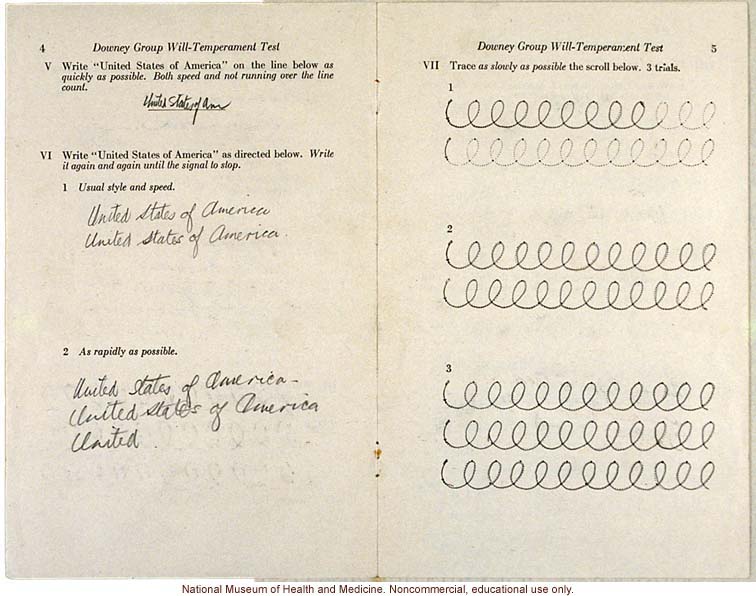 4 Downey Group Will-Temperament Test
V Write "United States of America" on the line below as
quickly as possible. Both speed and not running over the line
count.
United States of Am
VI Write "United States of America" as directed below. Write
it again and again until the signal to stop.
1 Usual style and speed.
United States of America
United States of America.
2 As rapidly as possible.
United States of America-
United States of America
United
Downey Group Will-Temperament Test 5
VII Trace as slowly as possible the scroll below. 3 trials.
1
2
3
National Museum of Health and Medicine. Noncommercial, educational use only.